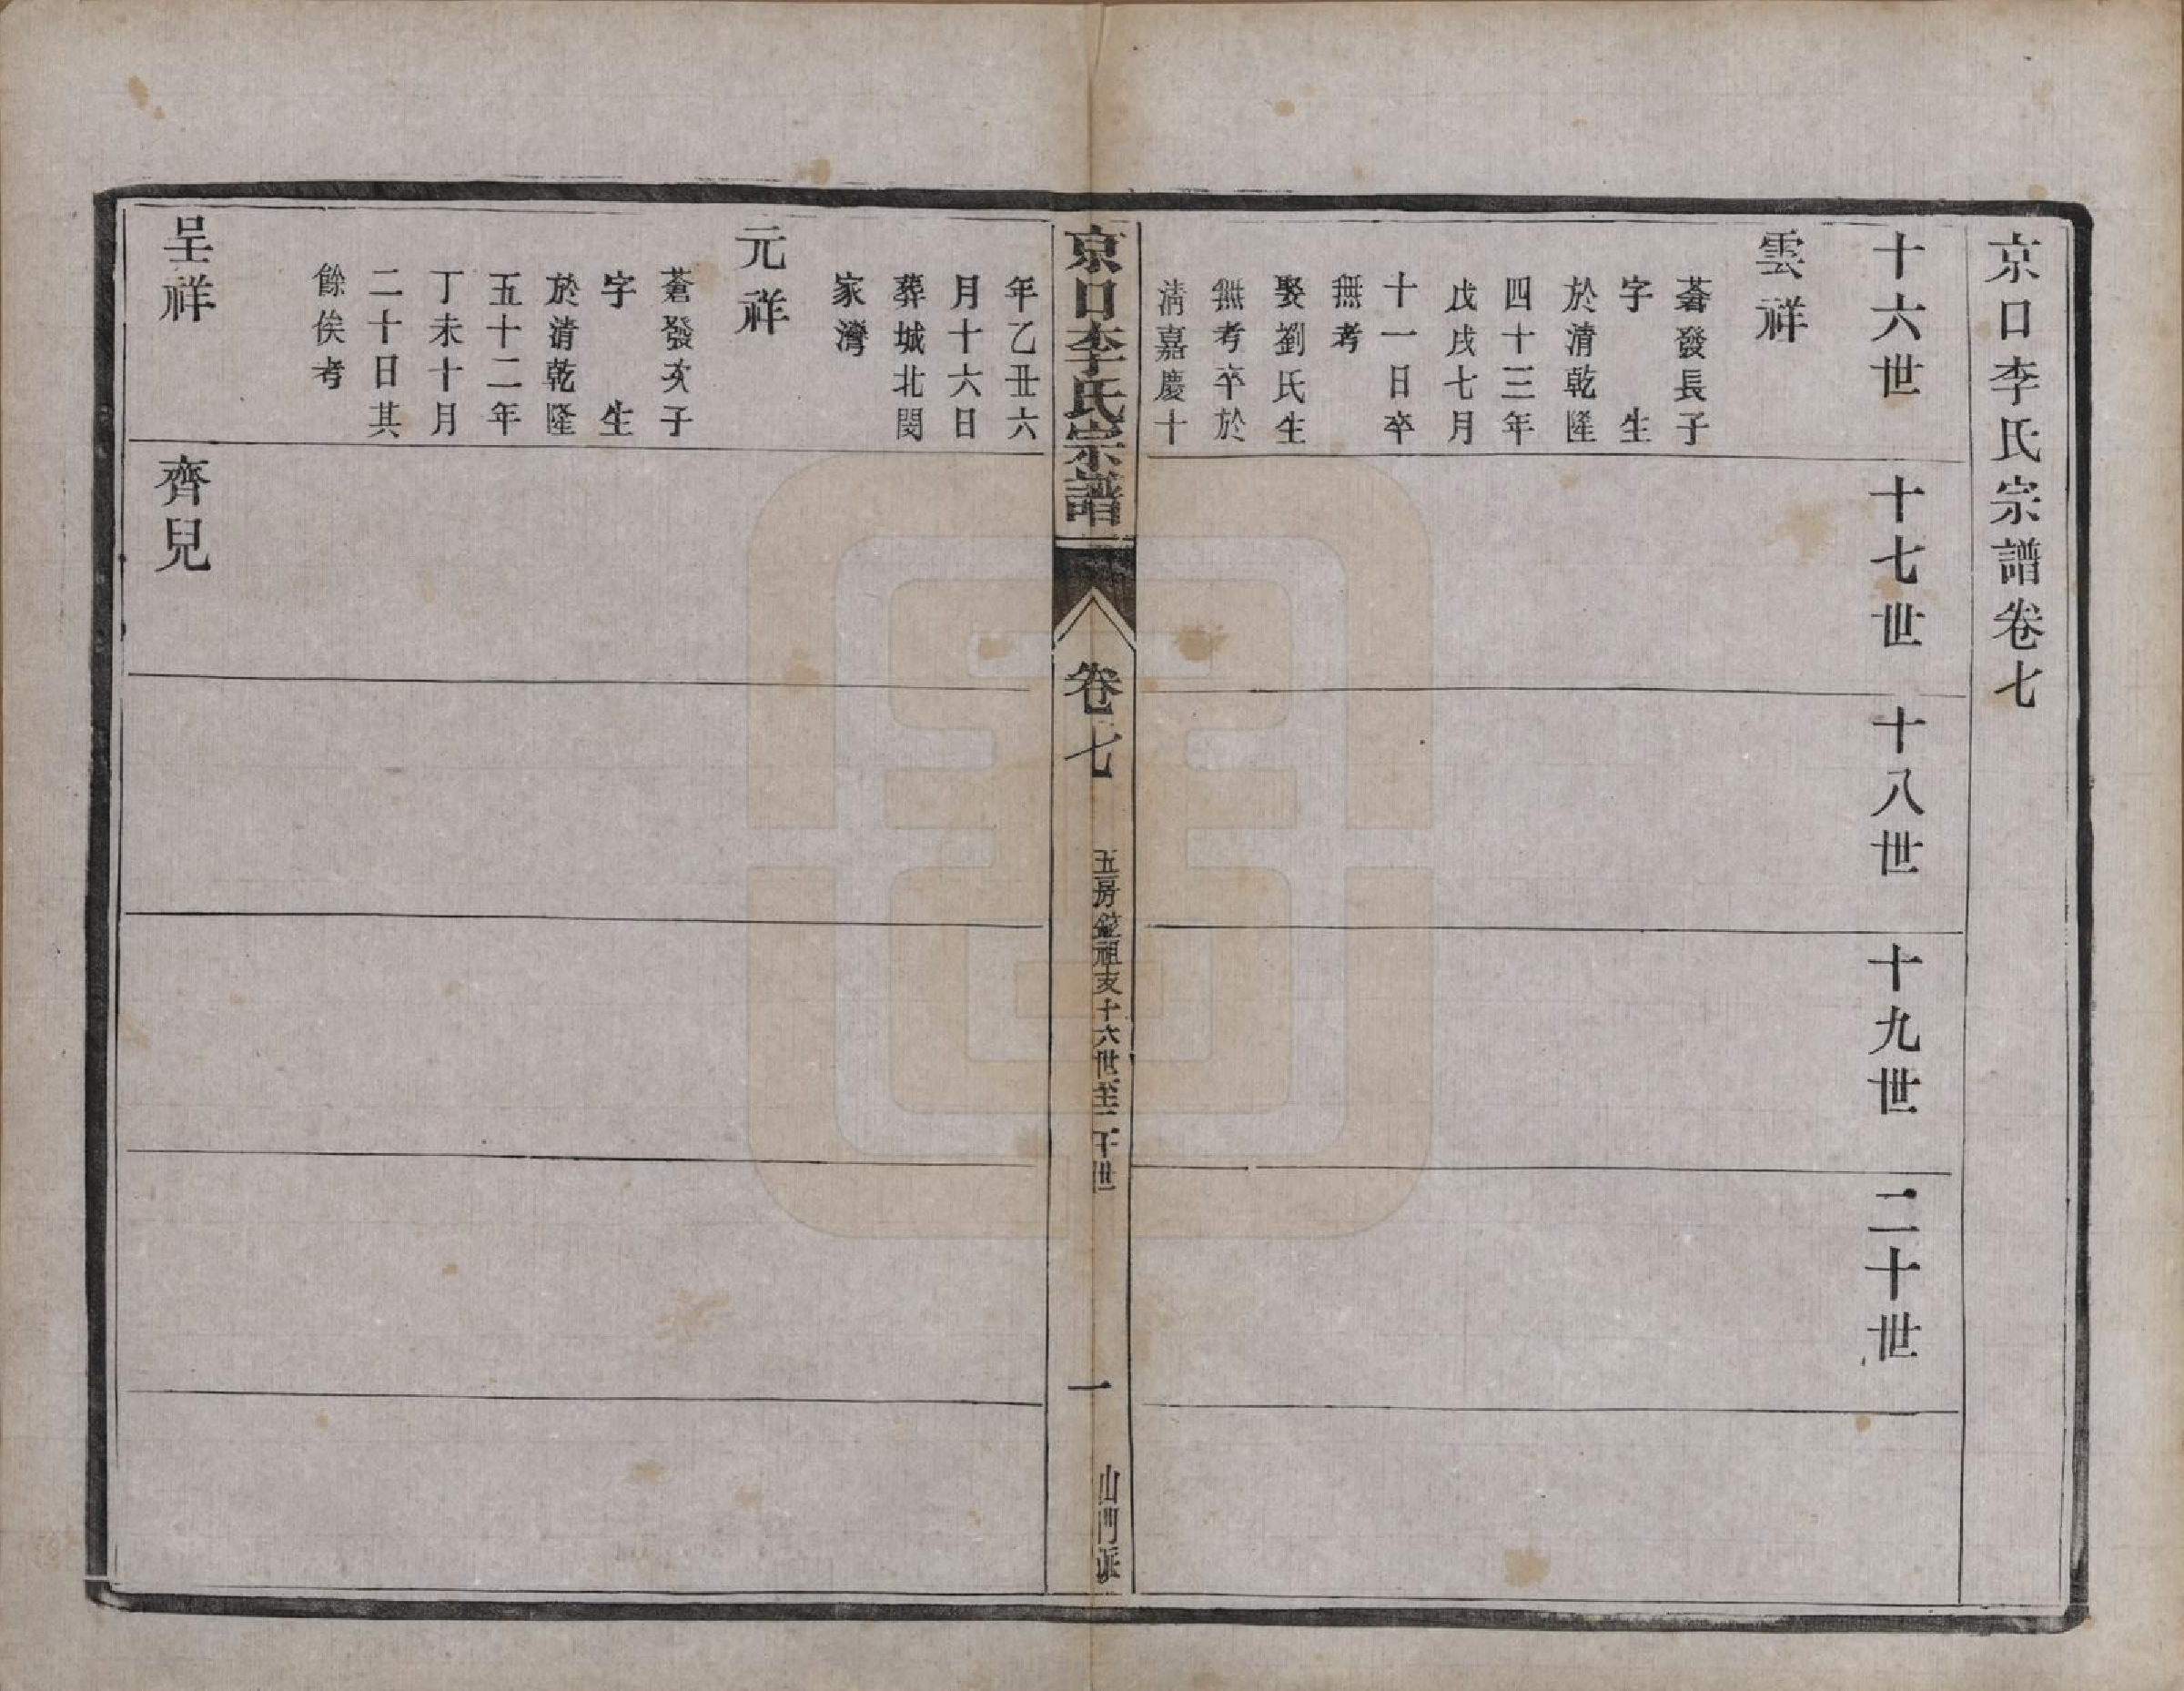 京口李氏宗譜卷七
十六世
十七世
十八世
十九世
二十世
雲祥
蒼發長子
字 生
於清乾隆
四十三年
戊戌七月
十一日卒
無考
娶劉氏生
無考卒於
清嘉慶十
京口李氏宗譜
卷七
五房 祖支十六世至二十世
一
山門派
年乙丑六
月十六日
葬城北閔
家灣
元祥
蒼發次子
字 生
於清乾隆
五十二年
丁未十月
二十日其
餘俟考
呈祥
齊兒